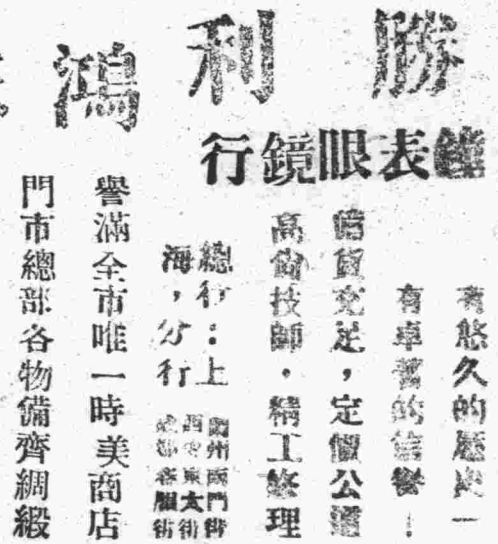 勝利
鐘表眼鏡行
有悠久的歷史一
有卓著的信譽！
備貨充足，定價公道
高尚技師，精工修理
總行：上
海，分行
蘭州南門街
西安東大街
成都春熙街
鴻
譽滿全市唯一時美商店
門市總部各物備齊綢緞